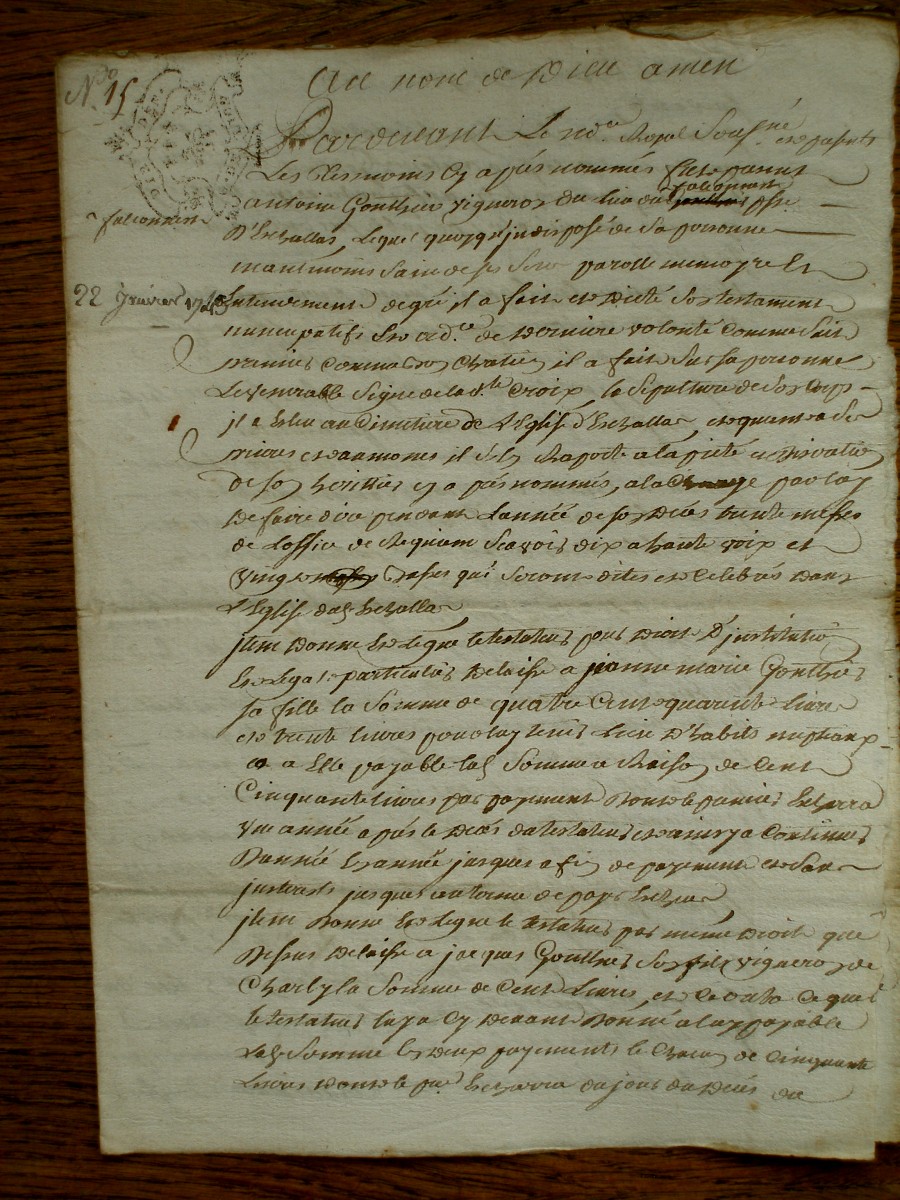 N.º 15
Au nom de Dieu amen
Pardevant Le no.re Royal Sousigné et presents
Les tesmoins cy aprés nommés fut present
antoine Gonthier vigneron du lieu du falconnet psse
falconnet
D'Echallas, Lequel quoyqu'jndisposé de sa personne
neantmoins sain de ses sens parolle memoyre et
22 janvier 1743
Entendement de gré il a fait et dicté son testament
nuncupatifs et ord.ce de derniere volonté comme suit
premier comme bon chretien il a fait sur sa personne
Le venerable signe de la s.te Croix, la sepulture de son corps
jl a Esleu au Cimetiere de L'Eglise d'Echallas, et quant a ses
prieres et aumones il s'en raporte a la pieté et devotion
de son heritier cy apres nommés, a la charge par luy
de faire dire pendant L'année de son decés trente messes
de Loffice de Requiem scavoir dix a haute voix et
vingt basses qui seront dites et celebrés dans
L'Eglise dud. Echallas
jtem donne et legue le testateur par droit d'jnstitution
et legat particulier delaisse a jeanne marie Gonthier
sa fille la somme de quatre cent quarente Livres
et trente livres pour luy tenir Lieu d'habits nuptiaux
a Elle payable lad. somme a raison de cent
Cinquante livres par payement dont le premier Echerra
une année aprés le decés du testateur et ainsy a continuer
d'année en année jusques a fin de payement et sans
jnterests jusques au terme de paye Echeue
jtem donne et legue le testateur par meme droit que
dessus delaisse a jacques Gonthier son fils vigneron de
Charly la somme de Cent Livres, et ce outre ce que
le testateur luy a cy devant donné a luy payable
Lad. somme en deux payements le chacun de cinquante
Livres dont le pre.r Echerra du jour du decés du